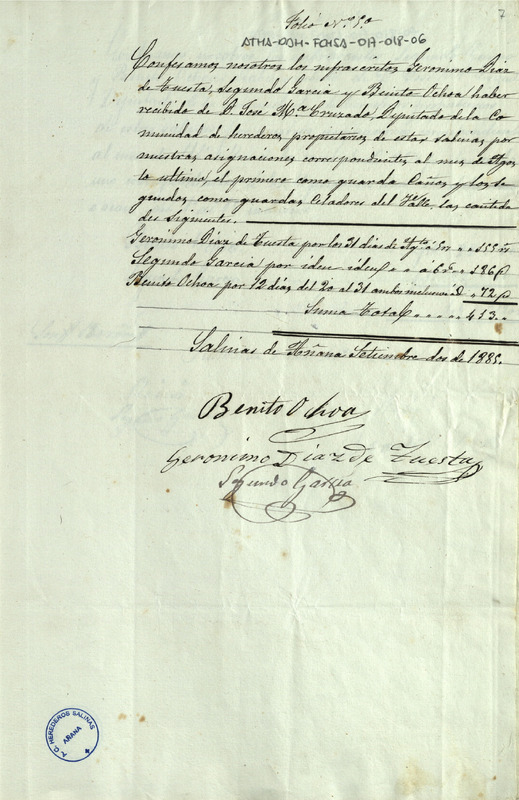 7
Folio Nº 5º
ATHA-DAH-FCHSA-DA-018-06
Confesamos nosotros los infrascritos Geronimo Diaz
de Tuesta, Segundo Garcia y Benito Ochoa haber
recibido de D. José Mª Cruzado, Diputado de la Co
munidad de herederos propietarios de estas salinas por
nuestras asignaciones correspondientes al mes de Agos
to ultimo, el primero como guarda Caños y los se
gundos como guardas Celadores del Valle, las cantida
des siguientes.
Geronimo Diaz de Tuesta por los 31 dias de Agto a 5 rs 155 rs
Segundo Garcia por iden iden a 6 rs 186
Benito Ochoa por 12 dias del 20 al 31 ambos inclusive 72
Suma Total 413
Salinas de Añana Setiembre dos de 1885.
Benito Ochoa
Geronimo Diaz de Tuesta
Segundo Garcia
A.G. HEREDEROS SALINAS
AÑANA